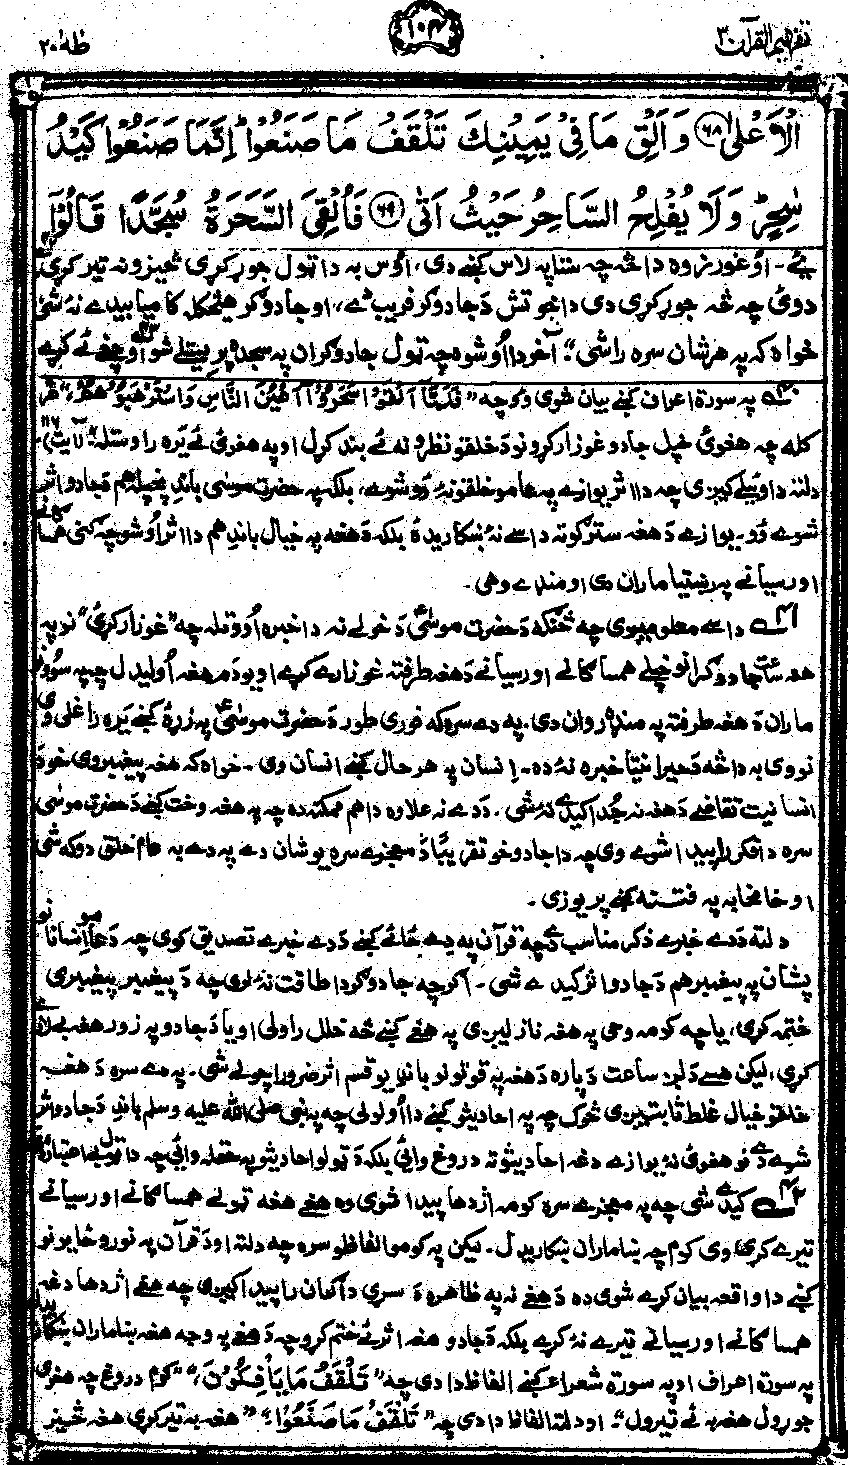 تفهیم القرآن ۳
۱۰۴
طٰهٰ ۲۰
الْاَعْلٰی ۶۸ وَاَلْقِ مَا فِیْ یَمِیْنِكَ تَلْقَفْ مَا صَنَعُوْا ؕ اِنَّمَا صَنَعُوْا كَیْدُ
سٰحِرٍ ؕ وَلَا یُفْلِحُ السَّاحِرُ حَیْثُ اَتٰی ۶۹ فَاُلْقِیَ السَّحَرَةُ سُجَّدًا قَالُوْۤا
ئې۔ او غورزوه دا څه چه ستا په لاس کښے دی، اوس به دا ټول جوړ کړی څیزونه تیر کړی
دوئ چه څه جوړ کړی دی دا خو تش دَ جادوګر فریب دے، او جادوګر هیڅکله کامیابیدے نۀ شی
خواه که په هر شان سره راشی“۔ آخر دا اوشوه چه ټول جادوګران په سجده پریستلے شو او چغے ئے کړے
په سورة اعراف کښے بیان شوی وو چه ”فَلَمَّاۤ اَلْقَوْا سَحَرُوْۤا اَعْیُنَ النَّاسِ وَاسْتَرْهَبُوْهُمْ“
کله چه هغوئ خپل جادو غوزار کړو نو دَ خلقو نظرونه ئے بند کړل او په هغوئ ئے یَره راوسته“ (آیت ۱۱۶)۔
دلته دا وئیلے کیږی چه دا اثر یواځے په عامو خلقو نۀ وو شوے، بلکه په حضرت موسٰی باندے هم دَ جادو اثر
شوے وو۔ یواځے دَ هغه سترګو ته دا سے نۀ ښکاریدۀ بلکه دَ هغه په خیال باندے هم دا اثر اوشو چه ګنی همسا
اورسیانے په رښتیا ماران دی او منډے وهی۔
دا سے معلومیږی چه څنګه دَ حضرت موسٰیؑ دَ خولے نه دا خبره اووتله چه ”غوزار کړئ“ نو په
هغه ساعت جادوګرانو خپلے همساګانے اورسیانے دَ هغه طرفته غوزارے کړے او یو دم هغه اولیدل چه په سوونو
ماران دَ هغه طرفته په منډه روان دی۔ په دے سره که فوری طور دَ حضرت موسٰیؑ په زړۀ کښے یَره راغلی وی
نو دی به دا څه دَ حیرانتیا خبره نۀ ده۔ انسان په هر حال کښے انسان وی۔ خواه که هغه پیغمبر وی خو دَ
انسانیت تقاضے دَ هغه نه جُدا کیدے نۀ شی۔ دَ دے نه علاوه دا هم ممکنه ده چه په هغه وخت کښے دَ حضرت موسٰی
سره دا فکر راپیدا شوے وی چه دا جادو خو تقریبًا دَ معجزے سره یو شان دے په دے به عام خلق دوکه شی
او خامخا به په فتنه کښے پریوزی۔
دلته دَ دے خبرے ذکر مناسب دے چه قرآن په دے ځائے کښے دَ دے خبرے تصدیق کوی چه دَ عامو انسانانو
پشان په پیغمبر هم دَ جادو اثر کیدے شی۔ اګرچه جادوګر دا طاقت نۀ لری چه دَ پیغمبر پیغمبری
ختمه کړی، یا چه کومه وحی په هغه نازلیږی په هغے کښے څه خلل راولی او یا دَ جادو په زور هغه بے لارے
کړی، لیکن هسے دَ لږ ساعت دَ پاره دَ هغه په قوتونو باندے یو قسم اثر ضرور اچولے شی۔ په دے سره دَ هغه
خلقو خیال غلط ثابتیږی څوک چه په احادیثو کښے دا اولولی چه په نبی صلی الله علیه وسلم باندے دَ جادو اثر
شوے دے نو هغوئ نۀ یواځے دغه احادیثو ته دروغ وائی بلکه دَ ټولو احادیثو په حقله وائی چه دا ټول بے اعتباره
کیدے شی چه په معجزے سره کومه اژدها پیدا شوی وه هغے هغه ټولے همساګانے اورسیانے
تیرے کړی وی کوم چه ښاماران ښکاریدل۔ لیکن په کومو الفاظو سره چه دلته او دَ قرآن په نورو ځایونو
کښے دا واقعه بیان کړے شوی ده دَ هغے نه په ظاهره دَ سړی دا ګمان راپیدا کیږی چه هغے اژدها دغه
همساګانے اورسیانے تیرے نۀ کړے بلکه دَ جادو هغه اثر ئے ختم کړو چه دَ هغے په وجه هغه ښاماران ښکاریدل
په سورة اعراف او په سورة شعراء کښے الفاظ دا دی چه ”تَلْقَفُ مَا یَأْفِكُوْنَ“، ”کوم دروغ چه هغوئ
جوړول هغه به ئے تیرول“۔ او دلته الفاظ دا دی چه ”تَلْقَفْ مَا صَنَعُوْا“، ”هغه به تیر کړی هغه څیز